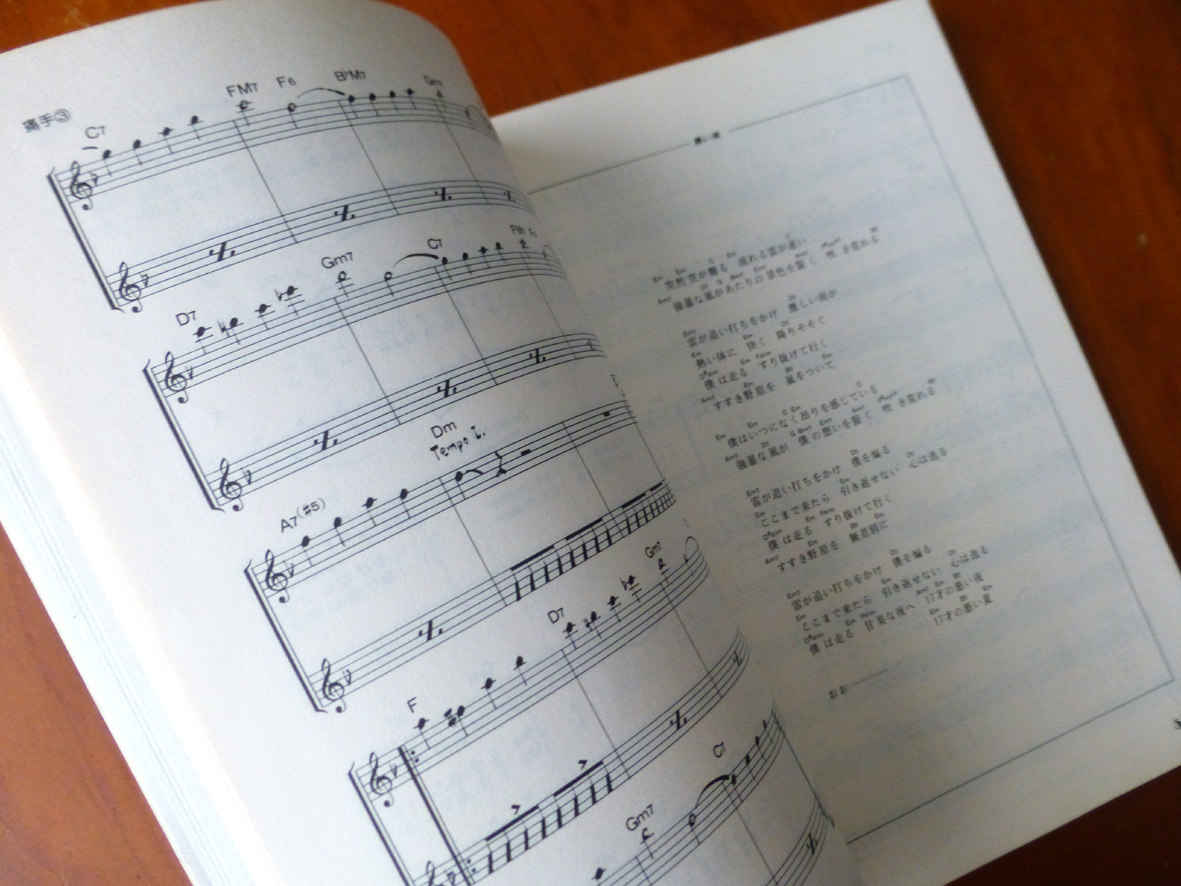 痛手③
C7 FM7 F6 B♭M7 Gm7
D7 Gm7 C7 FM7 F6
A7(♯5) Dm
Tempo I.
F D7 Gm7
Gm7 C7
突然空が翳る 流れる雲が速い
強暴な風があたりの景色を裂く 吹き荒れる
雷が追い打ちをかけ 激しい雨が
熱い体に 快く 降りそそぐ
僕は走る すり抜けて行く
すすき野原を 嵐をついて
僕はいつになく昂りを感じている
強暴な風が 僕の想いを裂く 吹き荒れる
雷が追い打ちをかけ 僕を煽る
ここまで来たら 引き返せない 心は逸る
僕は走る すり抜けて行く
すすき野原を 無差別に
雷が追い打ちをかけ 僕を煽る
ここまで来たら 引き返せない 心は逸る
僕は走る 甘美な夜へ 17才の悪い夜
17才の悪い夏
おお………